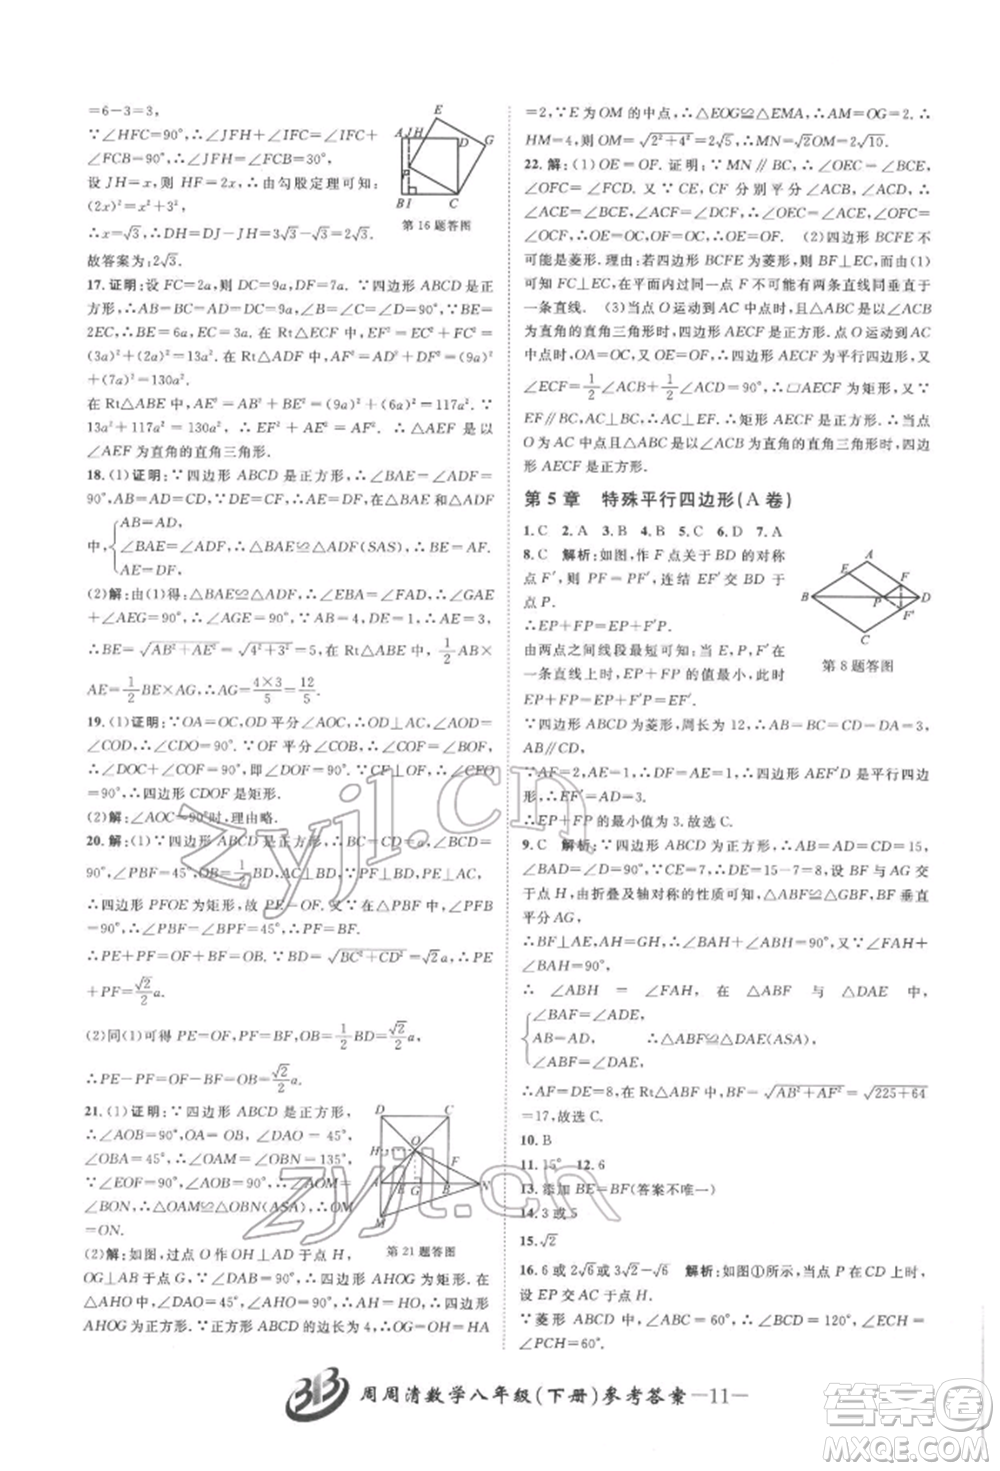 =6-3=3,
∵∠HFC=90°,∴∠JFH+∠IFC=∠IFC+
∠FCB=90°,∴∠JFH=∠FCB=30°.
设 JH=x,则 HF=2x,∴由勾股定理可知:
(2x)²=x²+3²,
∴x=√3,∴DH=DJ-JH=3√3-√3=2√3.
故答案为:2√3.
A J H D E G B I C
第16题答图
17.证明:设 FC=2a,则 DC=9a,DF=7a.∵四边形 ABCD 是正
方形,∴AB=BC=CD=DA=9a,∠B=∠C=∠D=90°.∵BE=
2EC,∴BE=6a,EC=3a.在 Rt△ECF 中,EF²=EC²+FC²=
(3a)²+(2a)²=13a².在 Rt△ADF 中,AF²=AD²+DF²=(9a)²
+(7a)²=130a².
在 Rt△ABE 中,AE²=AB²+BE²=(9a)²+(6a)²=117a².∵
13a²+117a²=130a²,∴EF²+AE²=AF²,∴△AEF 是以
∠AEF为直角的直角三角形.
18.(1)证明:∵四边形 ABCD 是正方形,∴∠BAE=∠ADF=
90°,AB=AD=CD.∵DE=CF,∴AE=DF.在△BAE 和△ADF
中,{AB=AD, ∠BAE=∠ADF, AE=DF, ∴△BAE≌△ADF(SAS).∴BE=AF.
(2)解:由(1)得:△BAE≌△ADF,∴∠EBA=∠FAD,∴∠GAE
+∠AEG=90°,∴∠AGE=90°.∵AB=4,DE=1,∴AE=3,
∴BE=√(AB²+AE²)=√(4²+3²)=5.在 Rt△ABE 中,1/2AB×
AE=1/2BE×AG,∴AG=4×3/5=12/5.
19.(1)证明:∵OA=OC,OD平分∠AOC,∴OD⊥AC,∠AOD=
∠COD,∴∠CDO=90°.∵OF平分∠COB,∴∠COF=∠FOB,
∴∠DOC+∠COF=90°,即∠DOF=90°.∵CF⊥OF,∴∠CFO
=90°,∴四边形 CDOF 是矩形.
(2)解:∠AOC=90°时,理由略.
20.解:(1)∵四边形 ABCD 是正方形,∴AC⊥BD.∵PF⊥BD,
∴PF∥AC,同理PE∥BD.
∴四边形 PFOE 为矩形,故 PE=OF.又∵∠PBF=45°,∠PFB
=90°,∴∠PBF=∠BPF=45°,∴PF=BF.
∴PE+PF=OF+FB=OB=1/2BD=√(BC²+CD²)=√2a,∴PE
+PF=√2/2a.
(2)同(1)可得 PE=OF,PF=BF,OB=1/2BD=√2/2a,
∴PE-PF=OF-BF=OB=√2/2a.
21.(1)证明:∵四边形 ABCD 是正方形,
∴∠AOB=90°,OA=OB,∠DAO=45°,
∠OBA=45°,∴∠OAM=∠OBN=135°.
∵∠EOF=90°,∠AOB=90°,∴∠AOM=
∠BON,∴△OAM≌△OBN(ASA),∴OM=
ON.
(2)解:如图,过点 O 作OH⊥AD于点 H,
D C H O F A E G B N M
第21题答图
OG⊥AB于点 G,∵∠GAH=90°,∴四边形 AHOG 是矩形.在
△AHO 中,∠DAO=45°,∴AH=OH,∴矩形 AHOG 是四边形
AHOG 为正方形.∵正方形 ABCD 的边长为 4,∴OH=HA
=2,∵E 为 OM 的中点,∴△EOG≌△EMA,∴AM=OG=2,∴
HM=4,则 OM=√(2²+4²)=2√5,∴MN=√2OM=2√10.
22.解:(1)OE=OF.证明:∵MN∥BC,∴∠OEC=∠BCE,
∠OFC=∠FCD.又∵CE 平分∠ACB,CF 平分∠ACD,∴
∠OCE=∠OEC,∠OFC=∠OCF,
∴OE=OC,OC=OF,∴OE=OF. (2)四边形 BCFE 不可
能是菱形.理由:若四边形 BCFE 为菱形,则 BF⊥EC,而由(1)
可知FC⊥EC,在平面内过同一点 F 不可能有两条直线垂直于
一条直线. (3)当点 O 运动到AC 中点时,且△ABC是以∠ACB
为直角的直角三角形时,四边形 AECF 是正方形.点 O 运动到AC
中点时,OA=OC,又∵OE=OF,∴四边形 AECF 为平行四边形.又
∠ECF=1/2∠ACB+1/2∠ACD=90°,∴▱AECF是矩形.∵
EF∥BC,∴∠AOE=∠ACB=90°,∴矩形 AECF 是正方形,∴当点
O为 AC 中点且△ABC 是以∠ACB 为直角的直角三角形时,四边
形 AECF 是正方形.
第 5 章 特殊平行四边形(A 卷)
1.C 2.A 3.B 4.B 5.C 6.D 7.A
8.C 解析:如图,作 F 点关于 BD 的对称
点 F′,则 PF=PF′,连结 EF′交 BD 于
点 P.
∴EP+FP=EP+F′P.
由两点之间线段最短可知:当 E,P,F′在
一条直线上时,EP+FP 的值最小,此时
EP+FP=EP+F′P=EF′.
A E F B P D F′ C
第 8 题答图
∵四边形 ABCD 为菱形,周长为 12,∴AB=BC=CD=DA=3,
AB∥CD.
∵AF=2,AE=1,∴DF=AE=1,∴四边形 AEF′D 是平行四边
形,∴EF′=AD=3.
∴EP+FP 的最小值为 3.故选 C.
9.C 解析:∵四边形 ABCD 为正方形,∴AB=AD=CD=15,
∠BAD=∠D=90°.∵CE=7,∴DE=15-7=8,由折叠,得△ABF≌
△GBF,由折叠及轴对称的性质可知,△ABF≌△GBF,BF垂直
平分 AG,
∴BF⊥AE,AH=GH,∴∠FAH+∠AFH=90°.又∵∠FAH+
∠BAH=90°,
∴∠ABH=∠FAH,在△ABF 与△DAE 中,
{∠BAF=∠ADE, AB=AD, ∠ABF=∠DAE, ∴△ABF≌△DAE(ASA),
∴AF=DE=8,在Rt△ABF 中,BF=√(AB²+AF²)=√(225+64)
=17,故选 C.
10.B
11.15° 12.6
13.添加 BE=BF(答案不唯一)
14.3 或 5
15.√2
16.6 或2√6或3√2-√6 解析:如图①所示,当点 P 在 CD 上时,
设 EP 交 AC 于点 H.
∵菱形 ABCD 的边长是 6,∠ABC=60°,∴∠BCD=120°,∠ECH=
∠PCH=60°.
周周清数学八年级(下册)参考答案—11—
zyjl.cn
zyjl.cn
答案圈
MXQE.COM